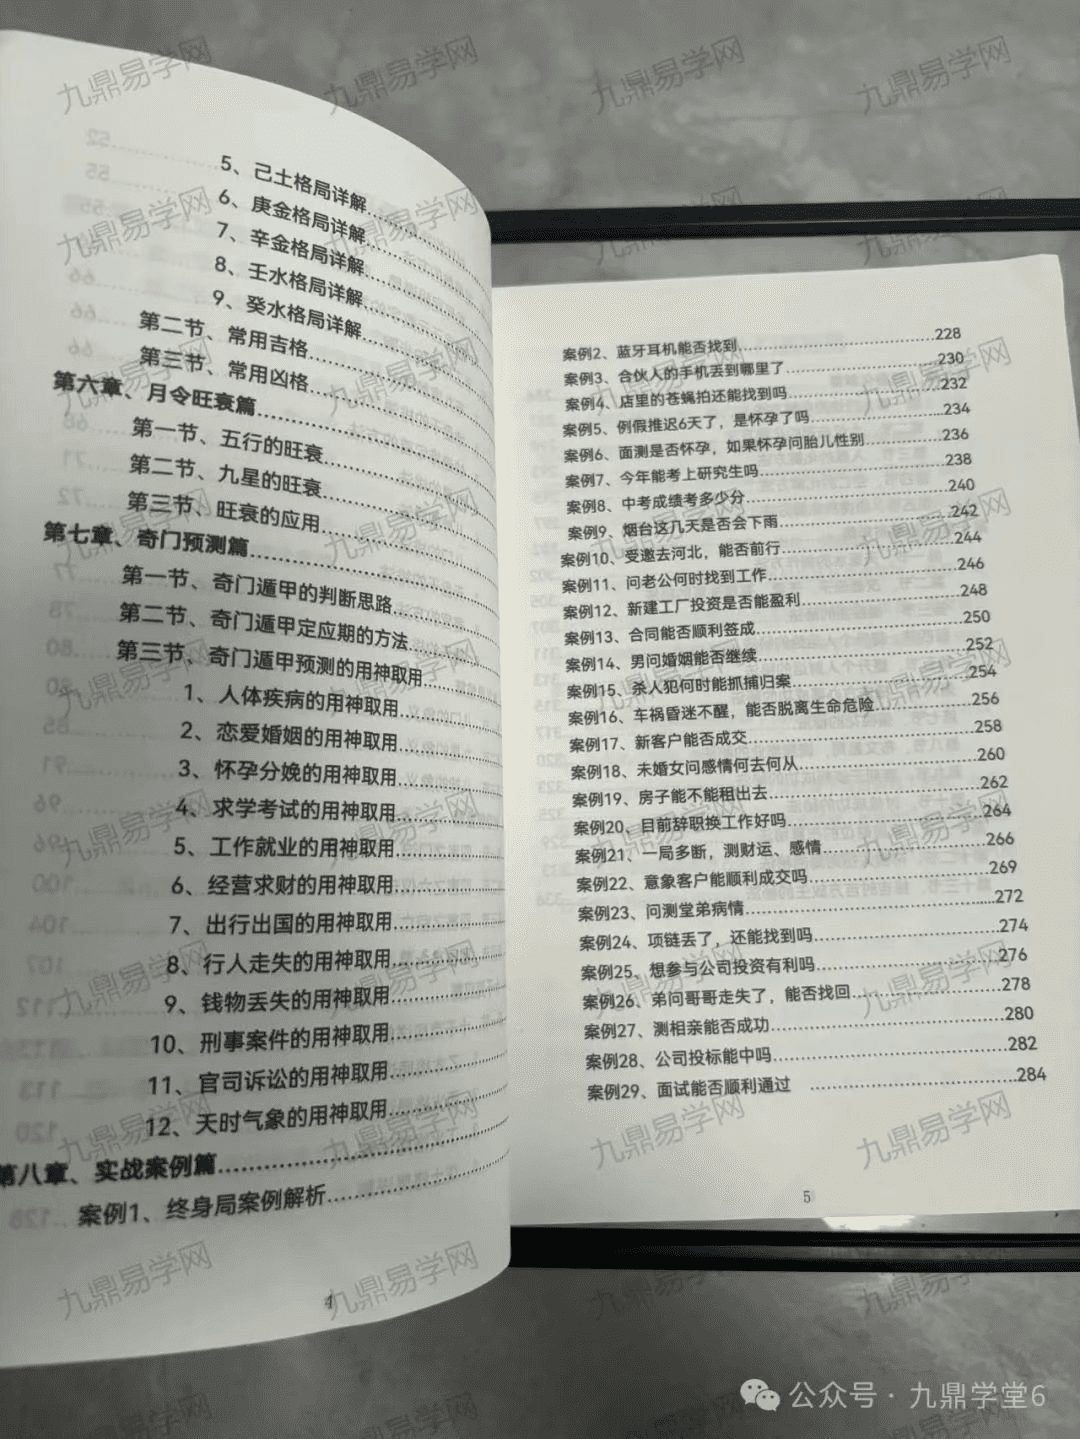 5、己土格局详解
6、庚金格局详解
7、辛金格局详解
8、壬水格局详解
9、癸水格局详解
第二节、常用吉格
第三节、常用凶格
第六章、月令旺衰篇
第一节、五行的旺衰
第二节、九星的旺衰
第三节、旺衰的应用
第七章、奇门预测篇
第一节、奇门遁甲的判断思路
第二节、奇门遁甲定应期的方法
第三节、奇门遁甲预测的用神取用
1、人体疾病的用神取用
2、恋爱婚姻的用神取用
3、怀孕分娩的用神取用
4、求学考试的用神取用
5、工作就业的用神取用
6、经营求财的用神取用
7、出行出国的用神取用
8、行人走失的用神取用
9、钱物丢失的用神取用
10、刑事案件的用神取用
11、官司诉讼的用神取用
12、天时气象的用神取用
第八章、实战案例篇
案例1、终身局案例解析
4
案例2、蓝牙耳机能否找到 228
案例3、合伙人的手机丢到哪里了 230
案例4、店里的苍蝇拍还能找到吗 232
案例5、例假推迟6天了，是怀孕了吗 234
案例6、面测是否怀孕，如果怀孕问胎儿性别 236
案例7、今年能考上研究生吗 238
案例8、中考成绩考多少分 240
案例9、烟台这几天是否会下雨 242
案例10、受邀去河北，能否前行 244
案例11、问老公何时找到工作 246
案例12、新建工厂投资是否能盈利 248
案例13、合同能否顺利签成 250
案例14、男问婚姻能否继续 252
案例15、杀人犯何时能抓捕归案 254
案例16、车祸昏迷不醒，能否脱离生命危险 256
案例17、新客户能否成交 258
案例18、未婚女问感情何去何从 260
案例19、房子能不能租出去 262
案例20、目前辞职换工作好吗 264
案例21、一局多断，测财运、感情 266
案例22、意象客户能顺利成交吗 269
案例23、问测堂弟病情 272
案例24、项链丢了，还能找到吗 274
案例25、想参与公司投资有利吗 276
案例26、弟问哥哥走失了，能否找回 278
案例27、测相亲能否成功 280
案例28、公司投标能中吗 282
案例29、面试能否顺利通过 284
5
九鼎易学网
公众号·九鼎学堂6